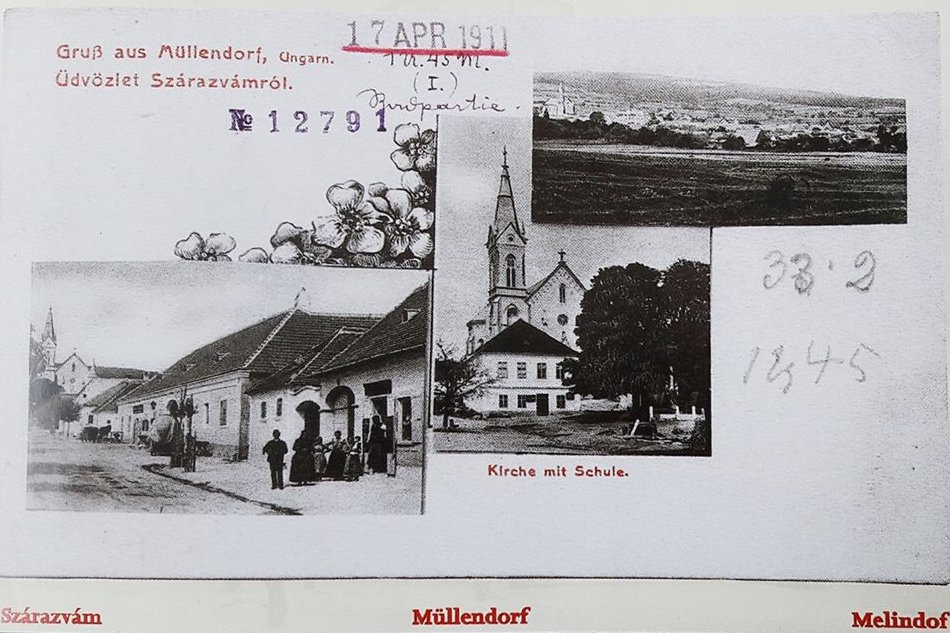 Gruß aus Müllendorf, Ungarn.
Üdvözlet Szárazvámról.
17 APR 1911
(I.)
№ 12791
Kirche mit Schule.
Szárazvám
Müllendorf
Melindof